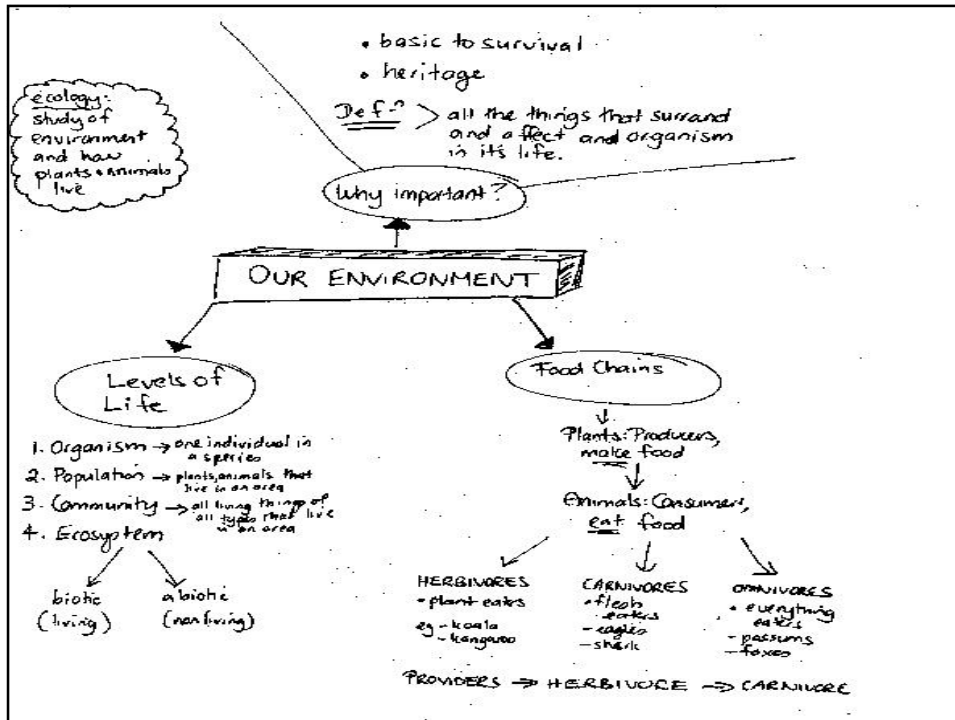 • basic to survival
• heritage
Def-? > all the things that surrand
and affect and organism
in it's life.
ecology:
study of
environment
and how
plants + animals
live
Why important?
OUR ENVIRONMENT
Levels of
Life
1. Organism → one individual in
a species
2. Population → plants, animals that
live in an area
3. Community → all living things of
all types that live
in an area
4. Ecosystem
biotic
(living)
abiotic
(non living)
Food Chains
Plants: Producers,
make food
Animals: Consumers,
eat food
HERBIVORES
• plant eaters
eg - koala
- kangaroo
CARNIVORES
• flesh
eaters
- eagles
- shark
OMNIVORES
• everything
eaters
- possums
- foxes
PROVIDERS → HERBIVORE → CARNIVORE